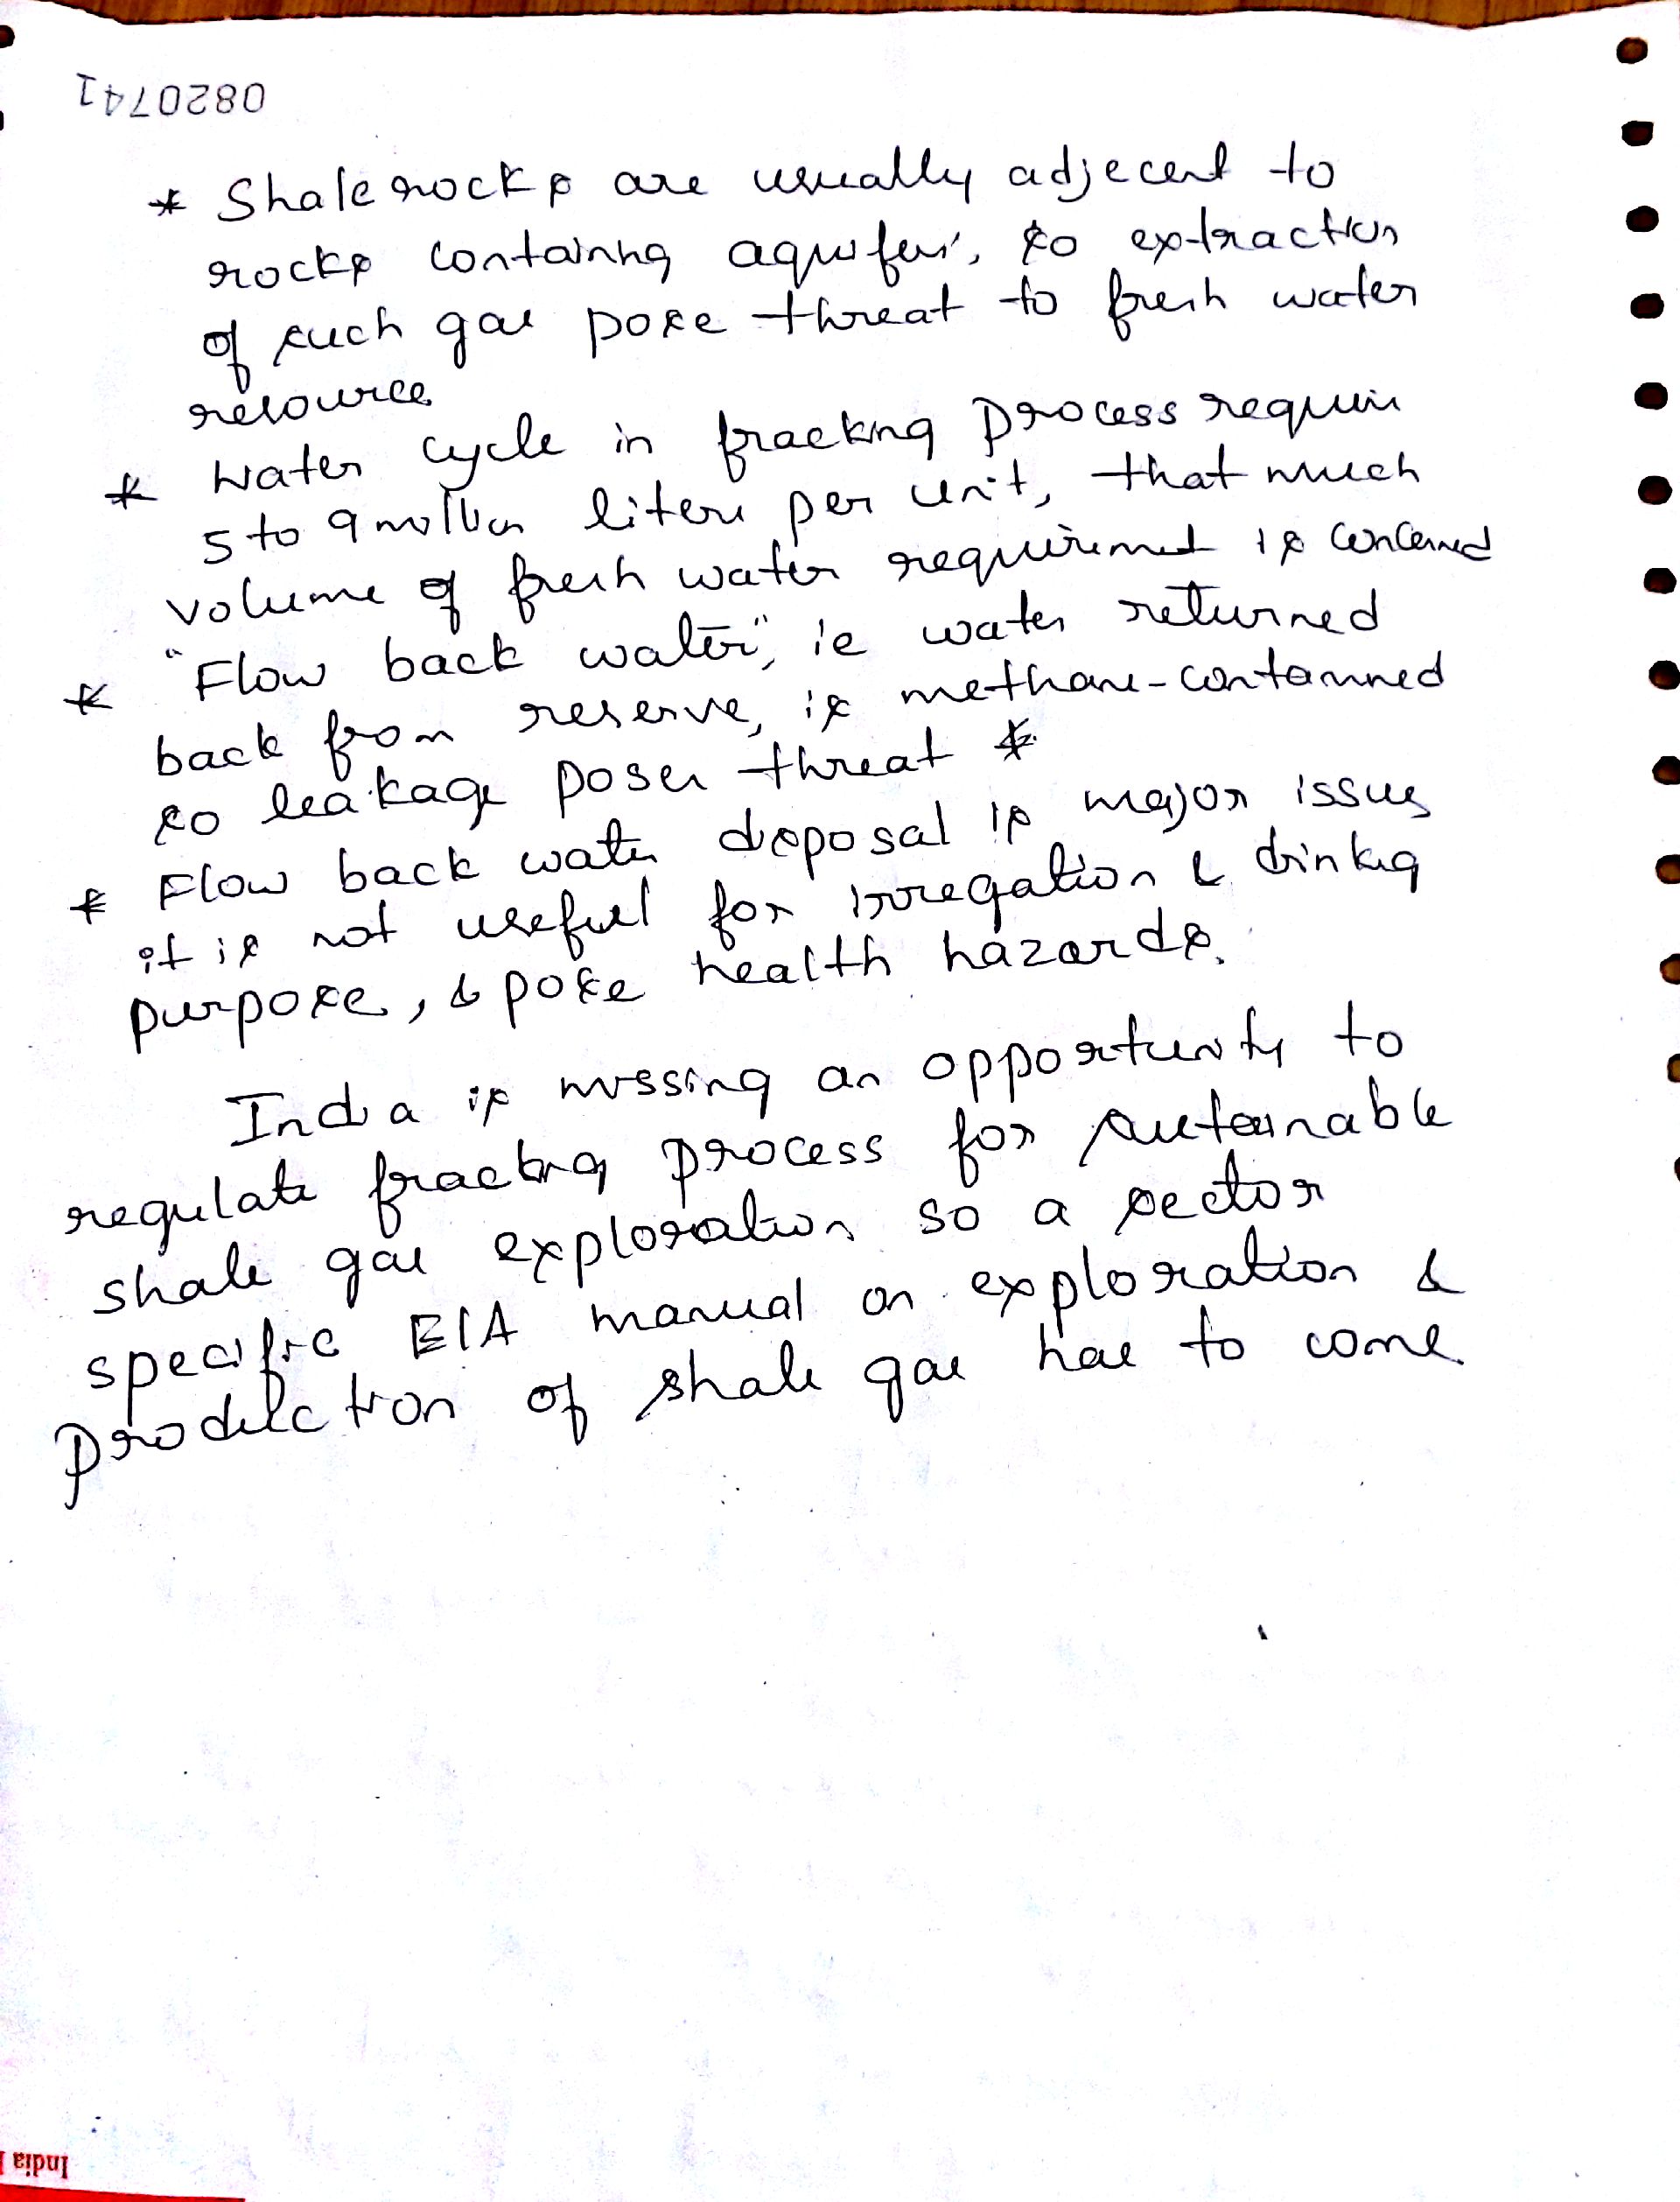 0820741
* Shale rocks are usually adjecent to
rocks containing aquifers, so extraction
of such gas pose threat to fresh water
resource
* Water cycle in fracking process require
5 to 9 million liters per unit, that much
volume of fresh water requirement is concerned
* "Flow back water", ie water returned
back from reserve, is methane-contamned
so leakage poses threat *
* Flow back water disposal is major issues
it is not useful for irregation & drinking
purpose, & pose health hazards.
India is missing an opportunity to
regulate fracking process for sustainable
shale gas exploration so a sector
specific EIA manual on exploration &
production of shale gas has to come
India